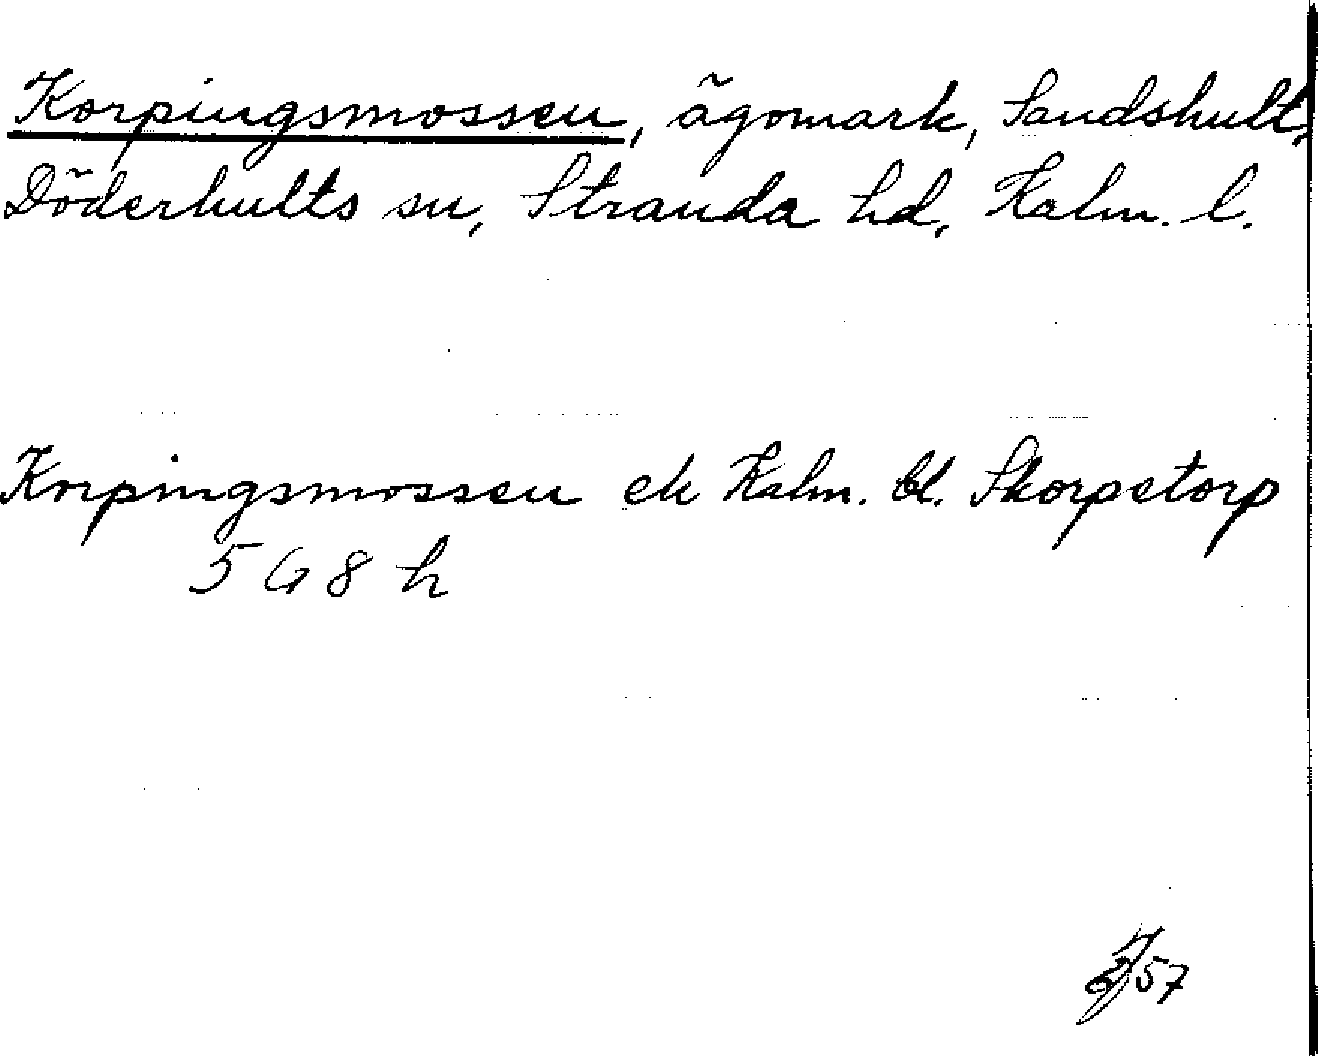 Korpingsmossen, ägomark, Sandshult,
Döderhults sn, Stranda hd, Kalm. l.
Korpingsmossen ek Kalm. bl. Skorpetorp
5 G 8 h
57